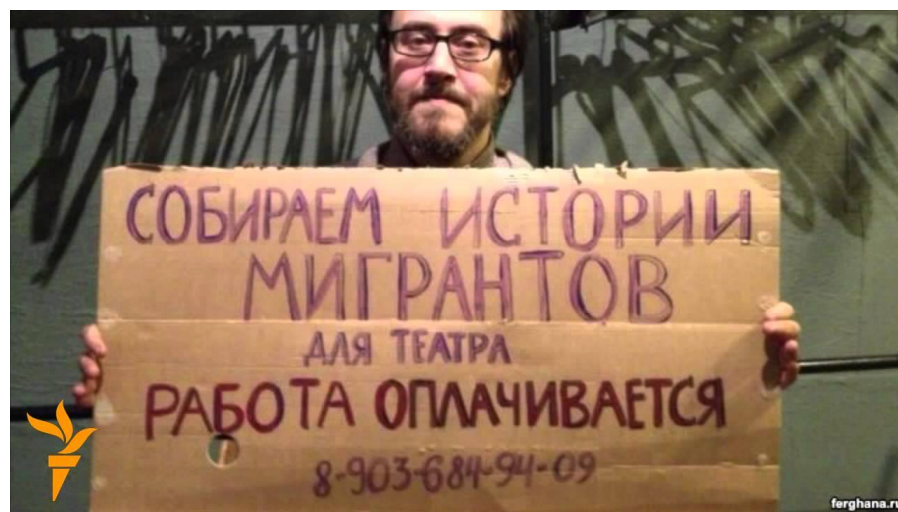 СОБИРАЕМ ИСТОРИИ
МИГРАНТОВ
ДЛЯ ТЕАТРА
РАБОТА ОПЛАЧИВАЕТСЯ
8-903-684-94-09
ferghana.ru